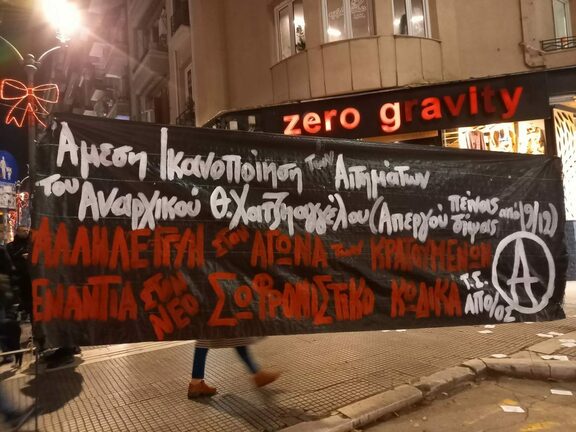 zero gravity
Άμεση Ικανοποίηση των Αιτημάτων
του Αναρχικού Θ. Χατζηαγγέλου (Απεργού πείνας δίψας από 9/12)
ΑΛΛΗΛΕΓΓΥΗ στον ΑΓΩΝΑ των ΚΡΑΤΟΥΜΕΝΩΝ
ΕΝΑΝΤΙΑ στον ΝΕΟ ΣΩΦΡΟΝΙΣΤΙΚΟ ΚΩΔΙΚΑ
Τ.Σ.
ΑΠΟ/ΟΣ